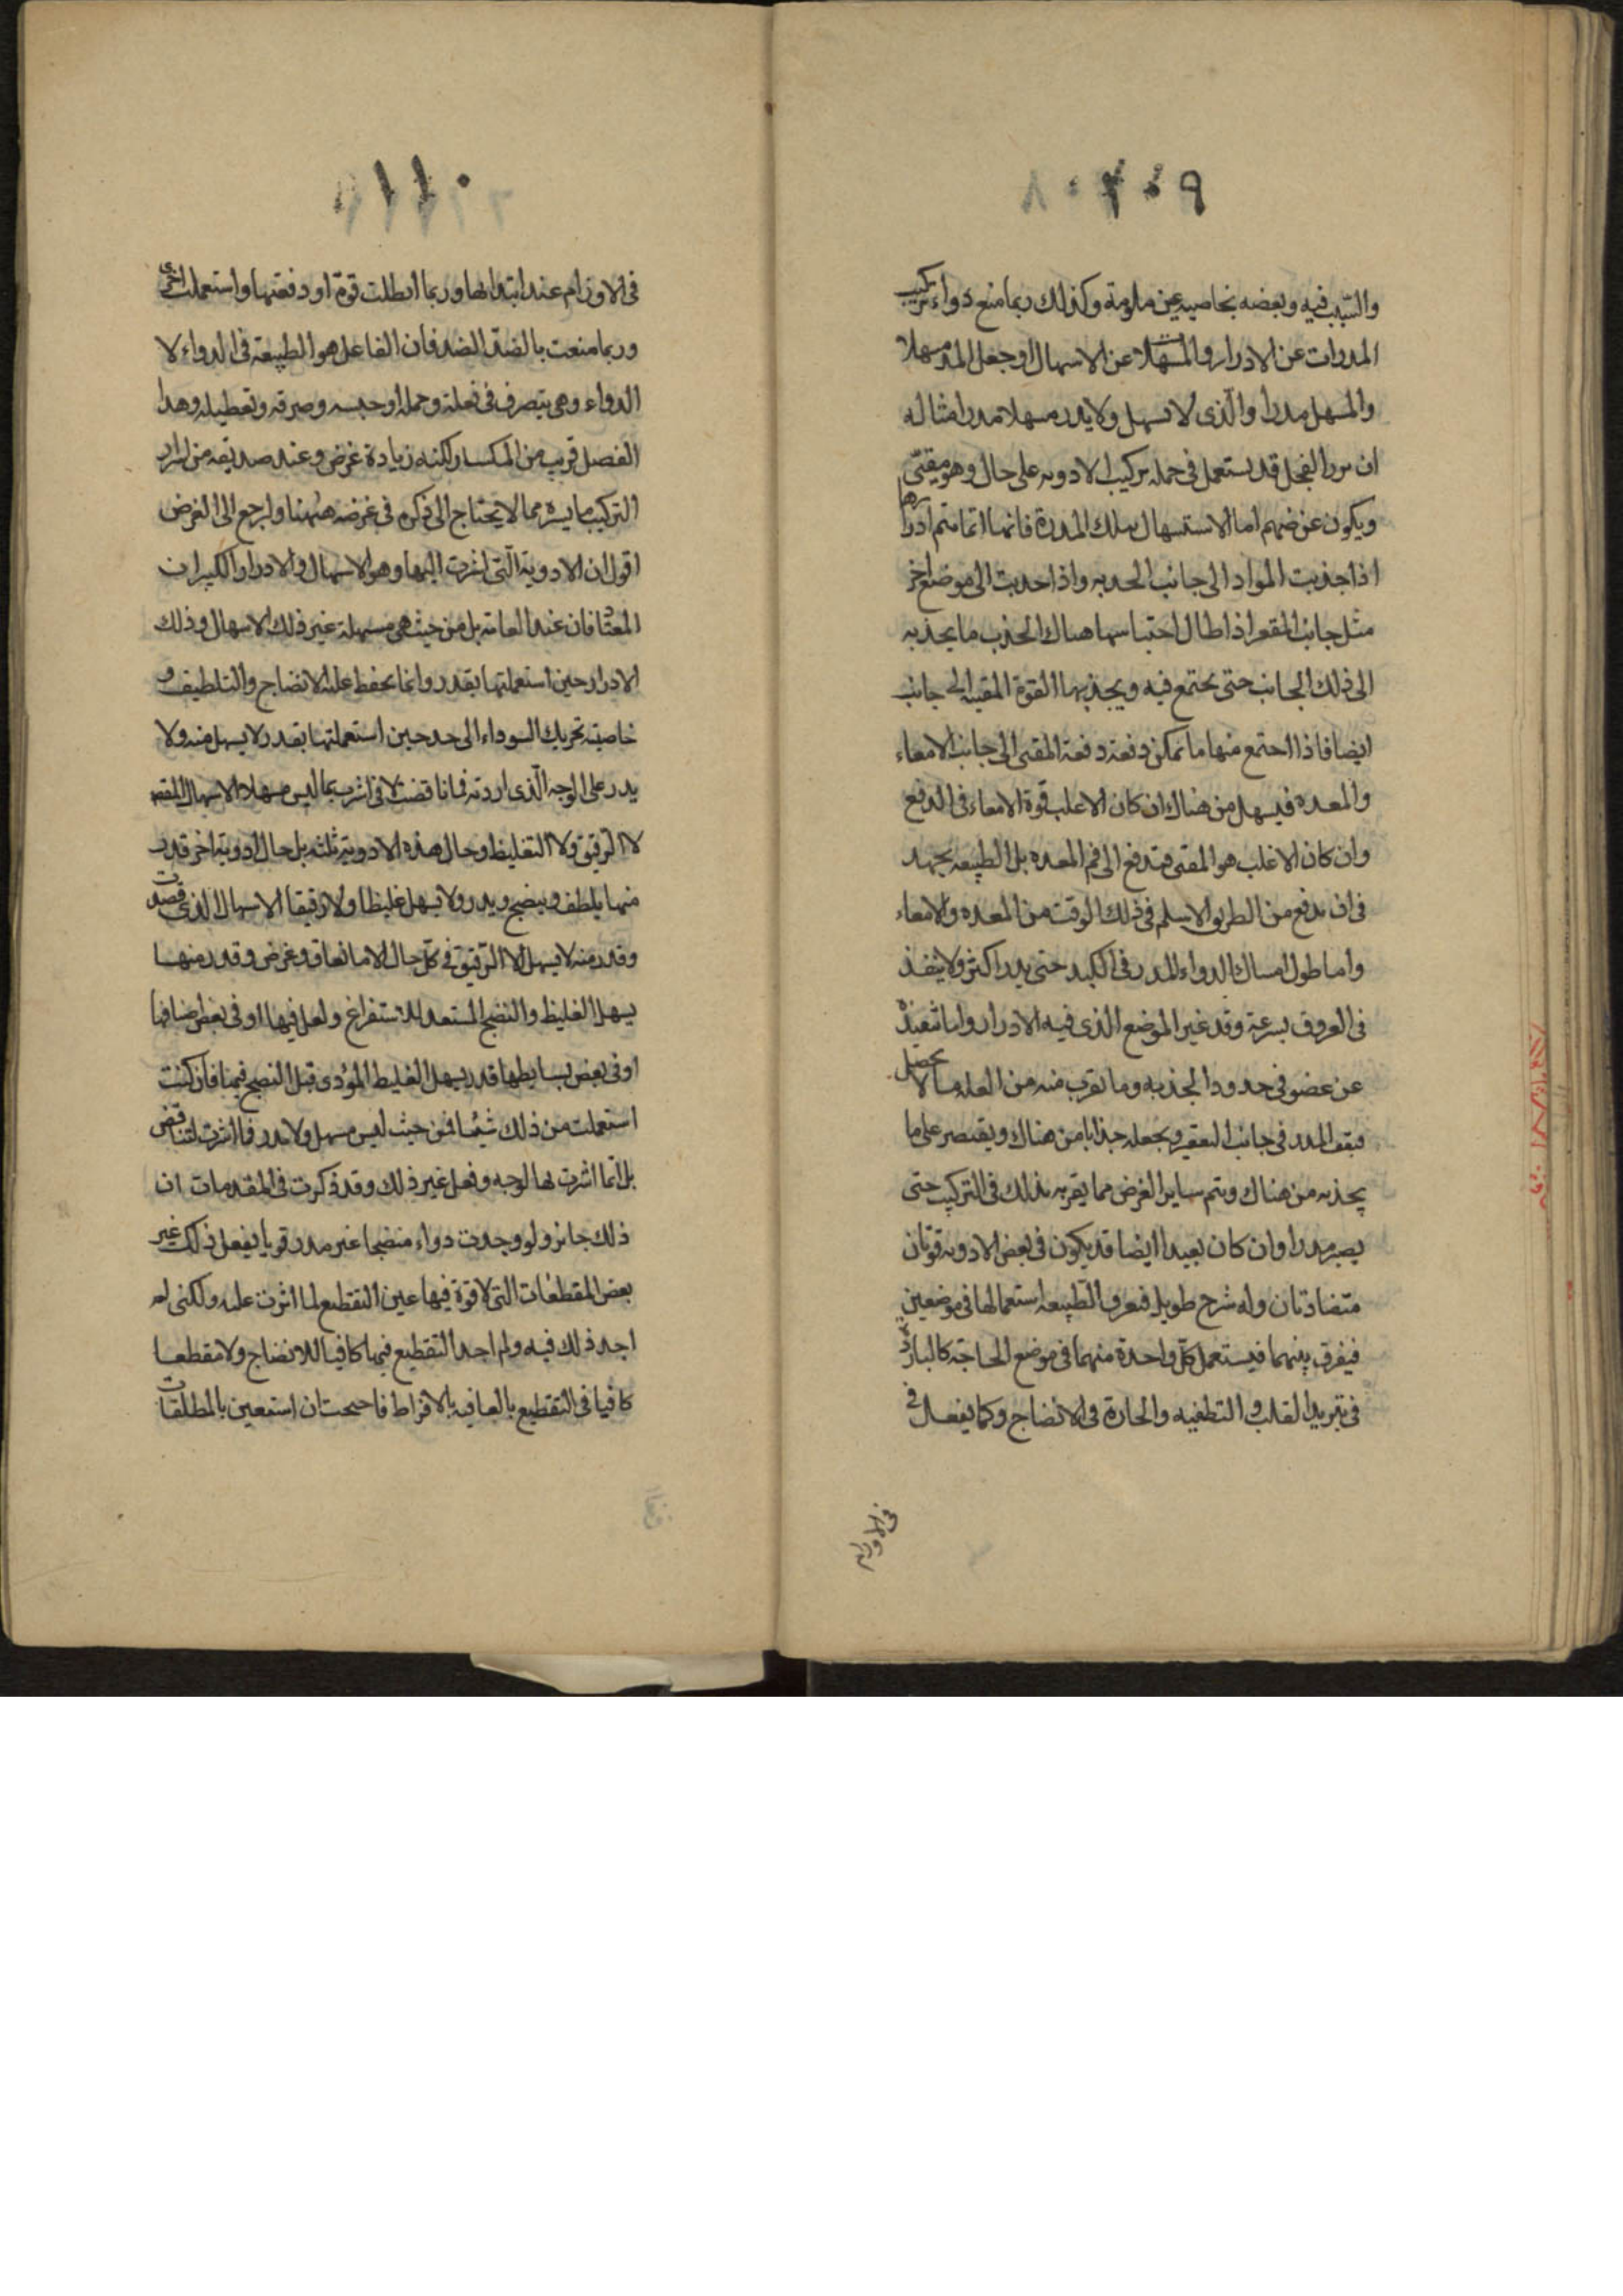 ١٠٩
والسبب فيه وبعضه بخاصيه عن ملومة وكذلك ربما منع دواء تركيب
المدرات عن الادرار والمسهلات عن الاسهال او جعل المدر مسهلا
والمسهل مدرا والذى لا يسهل ولا يدر مسهلا مدرا مثاله
ان بزر الفجل قد يستعمل فى جمله تركيب الادويه على حال وهو مقيئ
ويكون غرضهم اما الاستسهال بتلك المدرة فانها انما تتم ادرارها
اذا جذبت المواد الى جانب الحدبه واذا جذبت الى موضع اخر
مثل جانب المقعر اذا طال احتباسها هناك لجذب ما يجذبه
الى ذلك الجانب حتى يجتمع فيه ويجذبها القوة المقيئه الى جانب
ايضا فاذا اجتمع منها ما تمكن دفعة دفعة المقئ الى جانب الامعاء
والمعده فيسهل من هناك ان كان الاغلب قوة الامعاء فى الدفع
وان كان الاغلب هو المقئ فتدفع الى فم المعده بل الطبيعه يجهد
فى ان يدفع من الطريق الاسلم فى ذلك الوقت من المعده والامعاء
واما طول امساك الدواء المدر فى الكبد حتى يدر اكثر ولا ينفذ
فى العروق بسرعة وقد غير الموضع الذى فيه الادرار واما تنفيذه
عن عضو فى حدود الجذبه وما يقرب منه من العله مما لا يحصل
فيقف المدر فى جانب التقعير ويجعله جذابا من هناك ويقتصر على ما
يجذبه من هناك ويتم ساير الغرض مما يقربه بذلك فى التركيب حتى
يصير مدرا وان كان بعيدا ايضا قد يكون فى بعض الادويه قوتان
متضادتان وله شرح طويل فتعرف الطبيعه استعمالها فى موضعين
فيفرق بينهما فيستعمل كل واحدة منهما فى موضع الحاجة كالباردة
فى تبريد القلب والتطفيه والحارة فى الانضاج وكما يفعل فى
فى الاورام
١١٠
فى الاورام عند ابتدائها وربما ابطلت قوة او دفعتها واستعملت اخرى
وربما منعت بالضد الضد فان الفاعل هو الطبيعة فى الدواء لا
الدواء وهى يتصرف فى نعلة وحمله او حبسه وصرفه وتعطيله وهذا
الفصل قريب من المكسار لكنه زيادة غرض وعند صديقه من اسرار
التركيب ما يسره مما لا يحتاج الى ذكره فى غرضه ههنا ولرجع الى الغرض
اقول ان الادوية التى اشرت اليها وهو الاسهال والادرار الكبيران
المعتاد فان عند العامة بل من حيث هى مسهلة غير ذلك الاسهال وذلك
الادرار حين استعملتها بقدر وانما يحفظ عليه الانضاج والتلطيف و
خاصيته تحريك السوداء الى حد حين استعملتها بقدر لا يسهل منه ولا
يدر على الوجه الذى اردته فانا قضت لا فى اشرب بما ليس مسهلا الاسهال المقصد
لا الرقيق ولا التغليظ وحال هذه الادوية ثلثه بل حال ادوية اخر قدر
منها يلطف وينضج ويدر ولا يسهل غليظا ولا رقيقا الاسهال الذى قصدت
وقدر منه لا يسهل الا الرقيق فى كل حال الا ما اتفاق وغرض وقدر منها
يسهل الغليظ والنضج المستعد للاستفراغ ولعل فيها او فى بعض اضافها
او فى بعض بسايطها قدر يسهل الغليظ المؤدى قبل النضج فيها فان كنت
استعملت من ذلك شيئا فمن حيث ليس مسهل ولا مدر فما اشرت لتناقض
بل انما اشرت لها لوجه وفعل غير ذلك وقد ذكرت فى المقدمات ان
ذلك جائز ولو وجدت دواء منضجا غير مدر قويا يفعل ذلك غير
بعض المقطعات التى لا قوة فيها عين التقطيع لما اشرت عليه ولكنى لم
اجد ذلك فيه ولم اجد التقطيع فيها كافيا للانضاج ولا مقطعا
كافيا فى التقطيع بالعافيه بالافراط فاحتجت ان استعين بالمطلقات